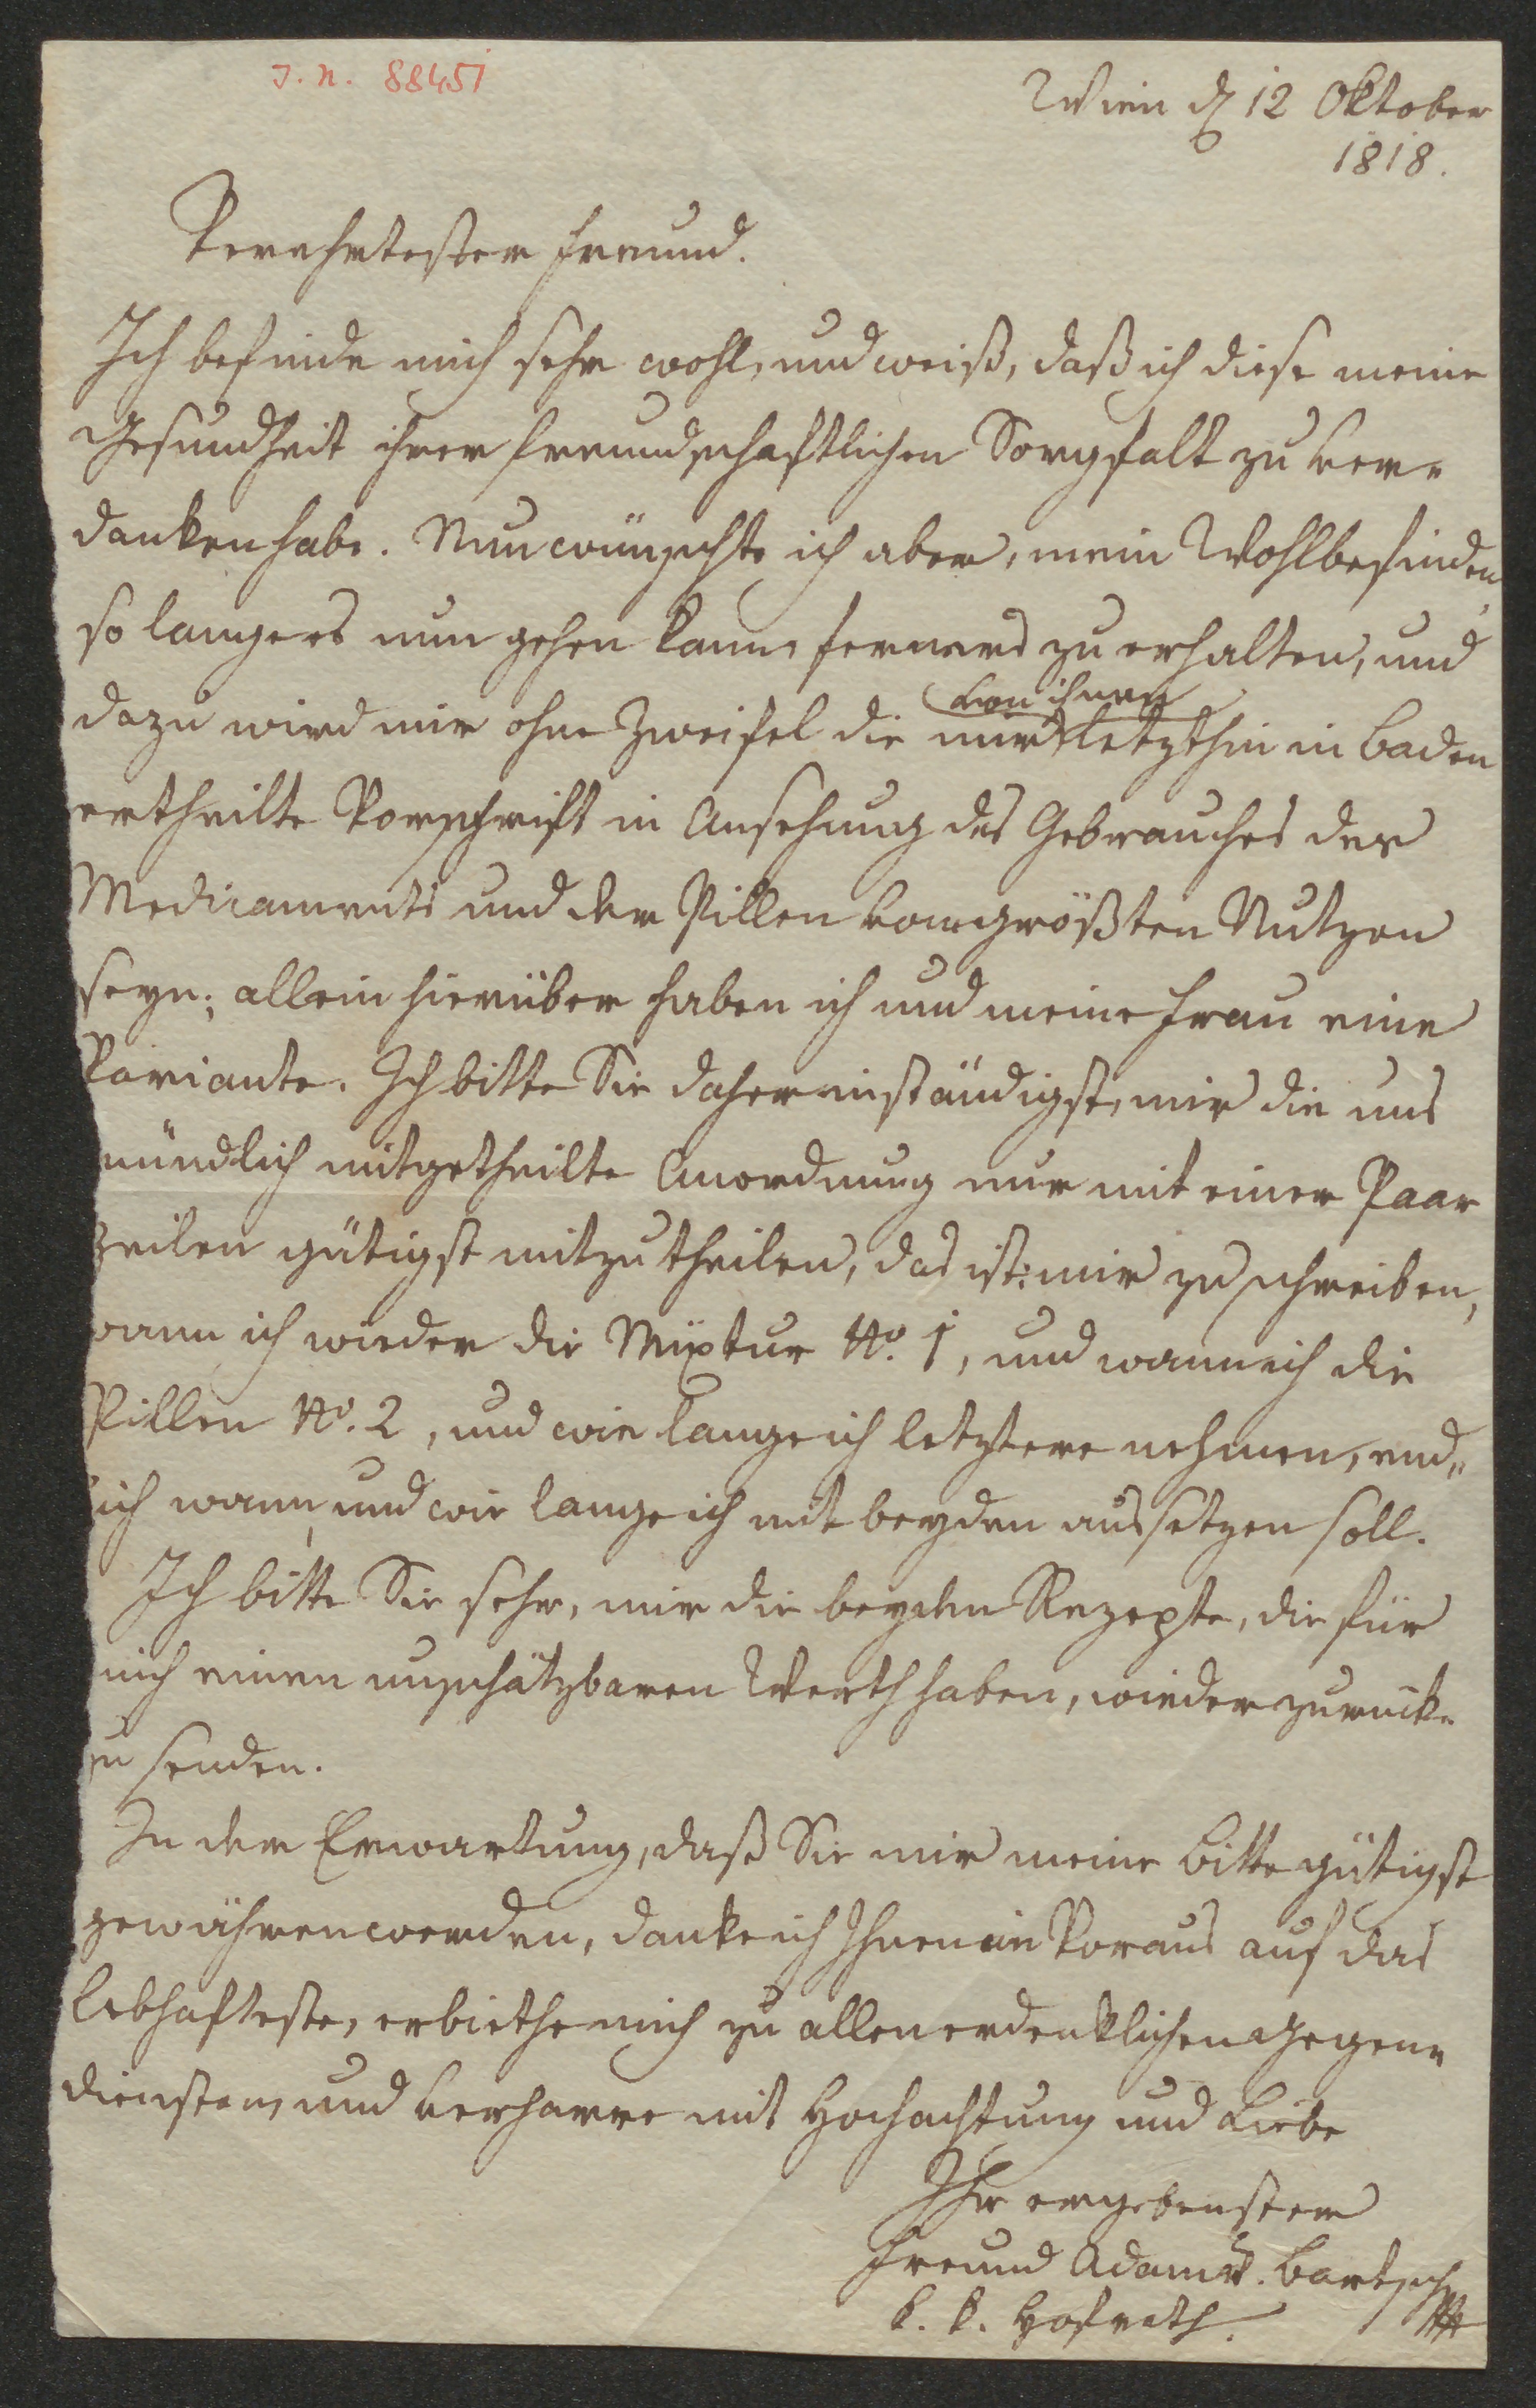 J. N. 88451
Wien d 12 Oktober
1818.
Verehrtester Freund.
Ich befinde mich sehr wohl, und weiß, daß ich diese meine
Gesundheit ihrer freundschaftlichen Sorgfalt zu ver-
danken habe. Nun wünschte ich aber, mein Wohlbefinden,
so lang es nun gehen kann, ferners zu erhalten, und
von ihnen
dazu wird mir ohne Zweifel die mir letzthin in Baden
ertheilte Vorschrift in Ansehung des Gebrauches der
Medicaments und der Pillen vom größten Nutzen
seyn; allein hierüber haben ich und meine Frau eine
Variante. Ich bitte Sie daher inständigst, mir die uns
mündlich mitgetheilte Anordnung nur mit einer Paar
Zeilen gütigst mitzutheilen, das ist: mir zu schreiben,
wann ich wieder die Mixtur No. 1, und wann ich die
Pillen No. 2, und wie lange ich letztere nehmen, end-
lich wann, und wie lange ich mit beyden aussetzen soll.
Ich bitte Sie sehr, mir die beyden Rezepte, die für
mich einen unschätzbaren Werth haben, wieder zurück-
zu senden.
In der Erwartung, daß Sie mir meine Bitte gütigst
gewähren werden, danke ich Ihnen im Voraus auf das
lebhafteste, erbiethe mich zu allen erdenklichen Gegen-
diensten, und verharre mit Hochachtung und Liebe
Ihr ergebenster
Freund Adam v. Bartsch
k. k. Hofrath.